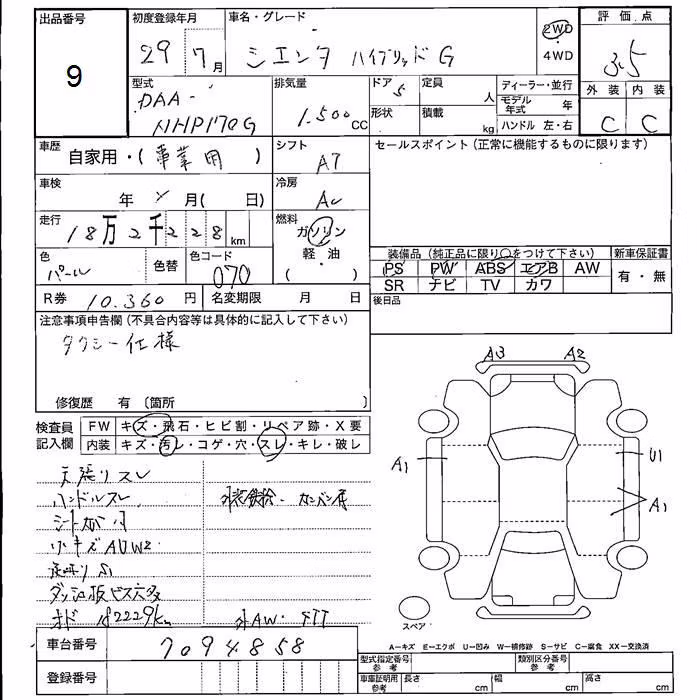 出品番号
9
初度登録年月
29 7月
車名・グレード
シエンタ ハイブリッドG
2WD
・
4WD
評価点
3.5
外装 内装
C C
型式
DAA-
NHP170G
排気量
1.500cc
ドア 5
定員 人
形状
積載 kg
ディーラー・並行
モデル年式 年
ハンドル 左・右
車歴
自家用・(事業用)
シフト
AT
セールスポイント(正常に機能するものに限ります)
車検
年 月(日)
冷房
AC
走行
18万2千228km
燃料
ガソリン
軽・油
( )
色
パール
色替
色コード
070
装備品(純正品に限り○をつけて下さい)
PS PW ABS エアB AW
SR ナビ TV カワ
新車保証書
有・無
R券 10.360円
名変期限 月 日
後日品
注意事項申告欄(不具合内容等は具体的に記入して下さい)
タクシー仕様
修復歴 有 〔箇所 〕
検査員
記入欄
FW キズ・飛石・ヒビ割・リペア跡・X要
内装 キズ・汚レ・コゲ・穴・スレ・キレ・破レ
天張りスレ
ハンドルスレ
小キズAUW2
ダッシュ板ビス穴多
オド 182229km
外AW・
A3 A2
A1
U1
A1
スペア
A-キズ E-エクボ U-凹み W-補修跡 S-サビ C-腐食 XX-交換済
車台番号
7094858
登録番号
型式指定番号
参考
類別区分番号
参考
車庫証明用
参考
長さ cm
幅 cm
高さ cm